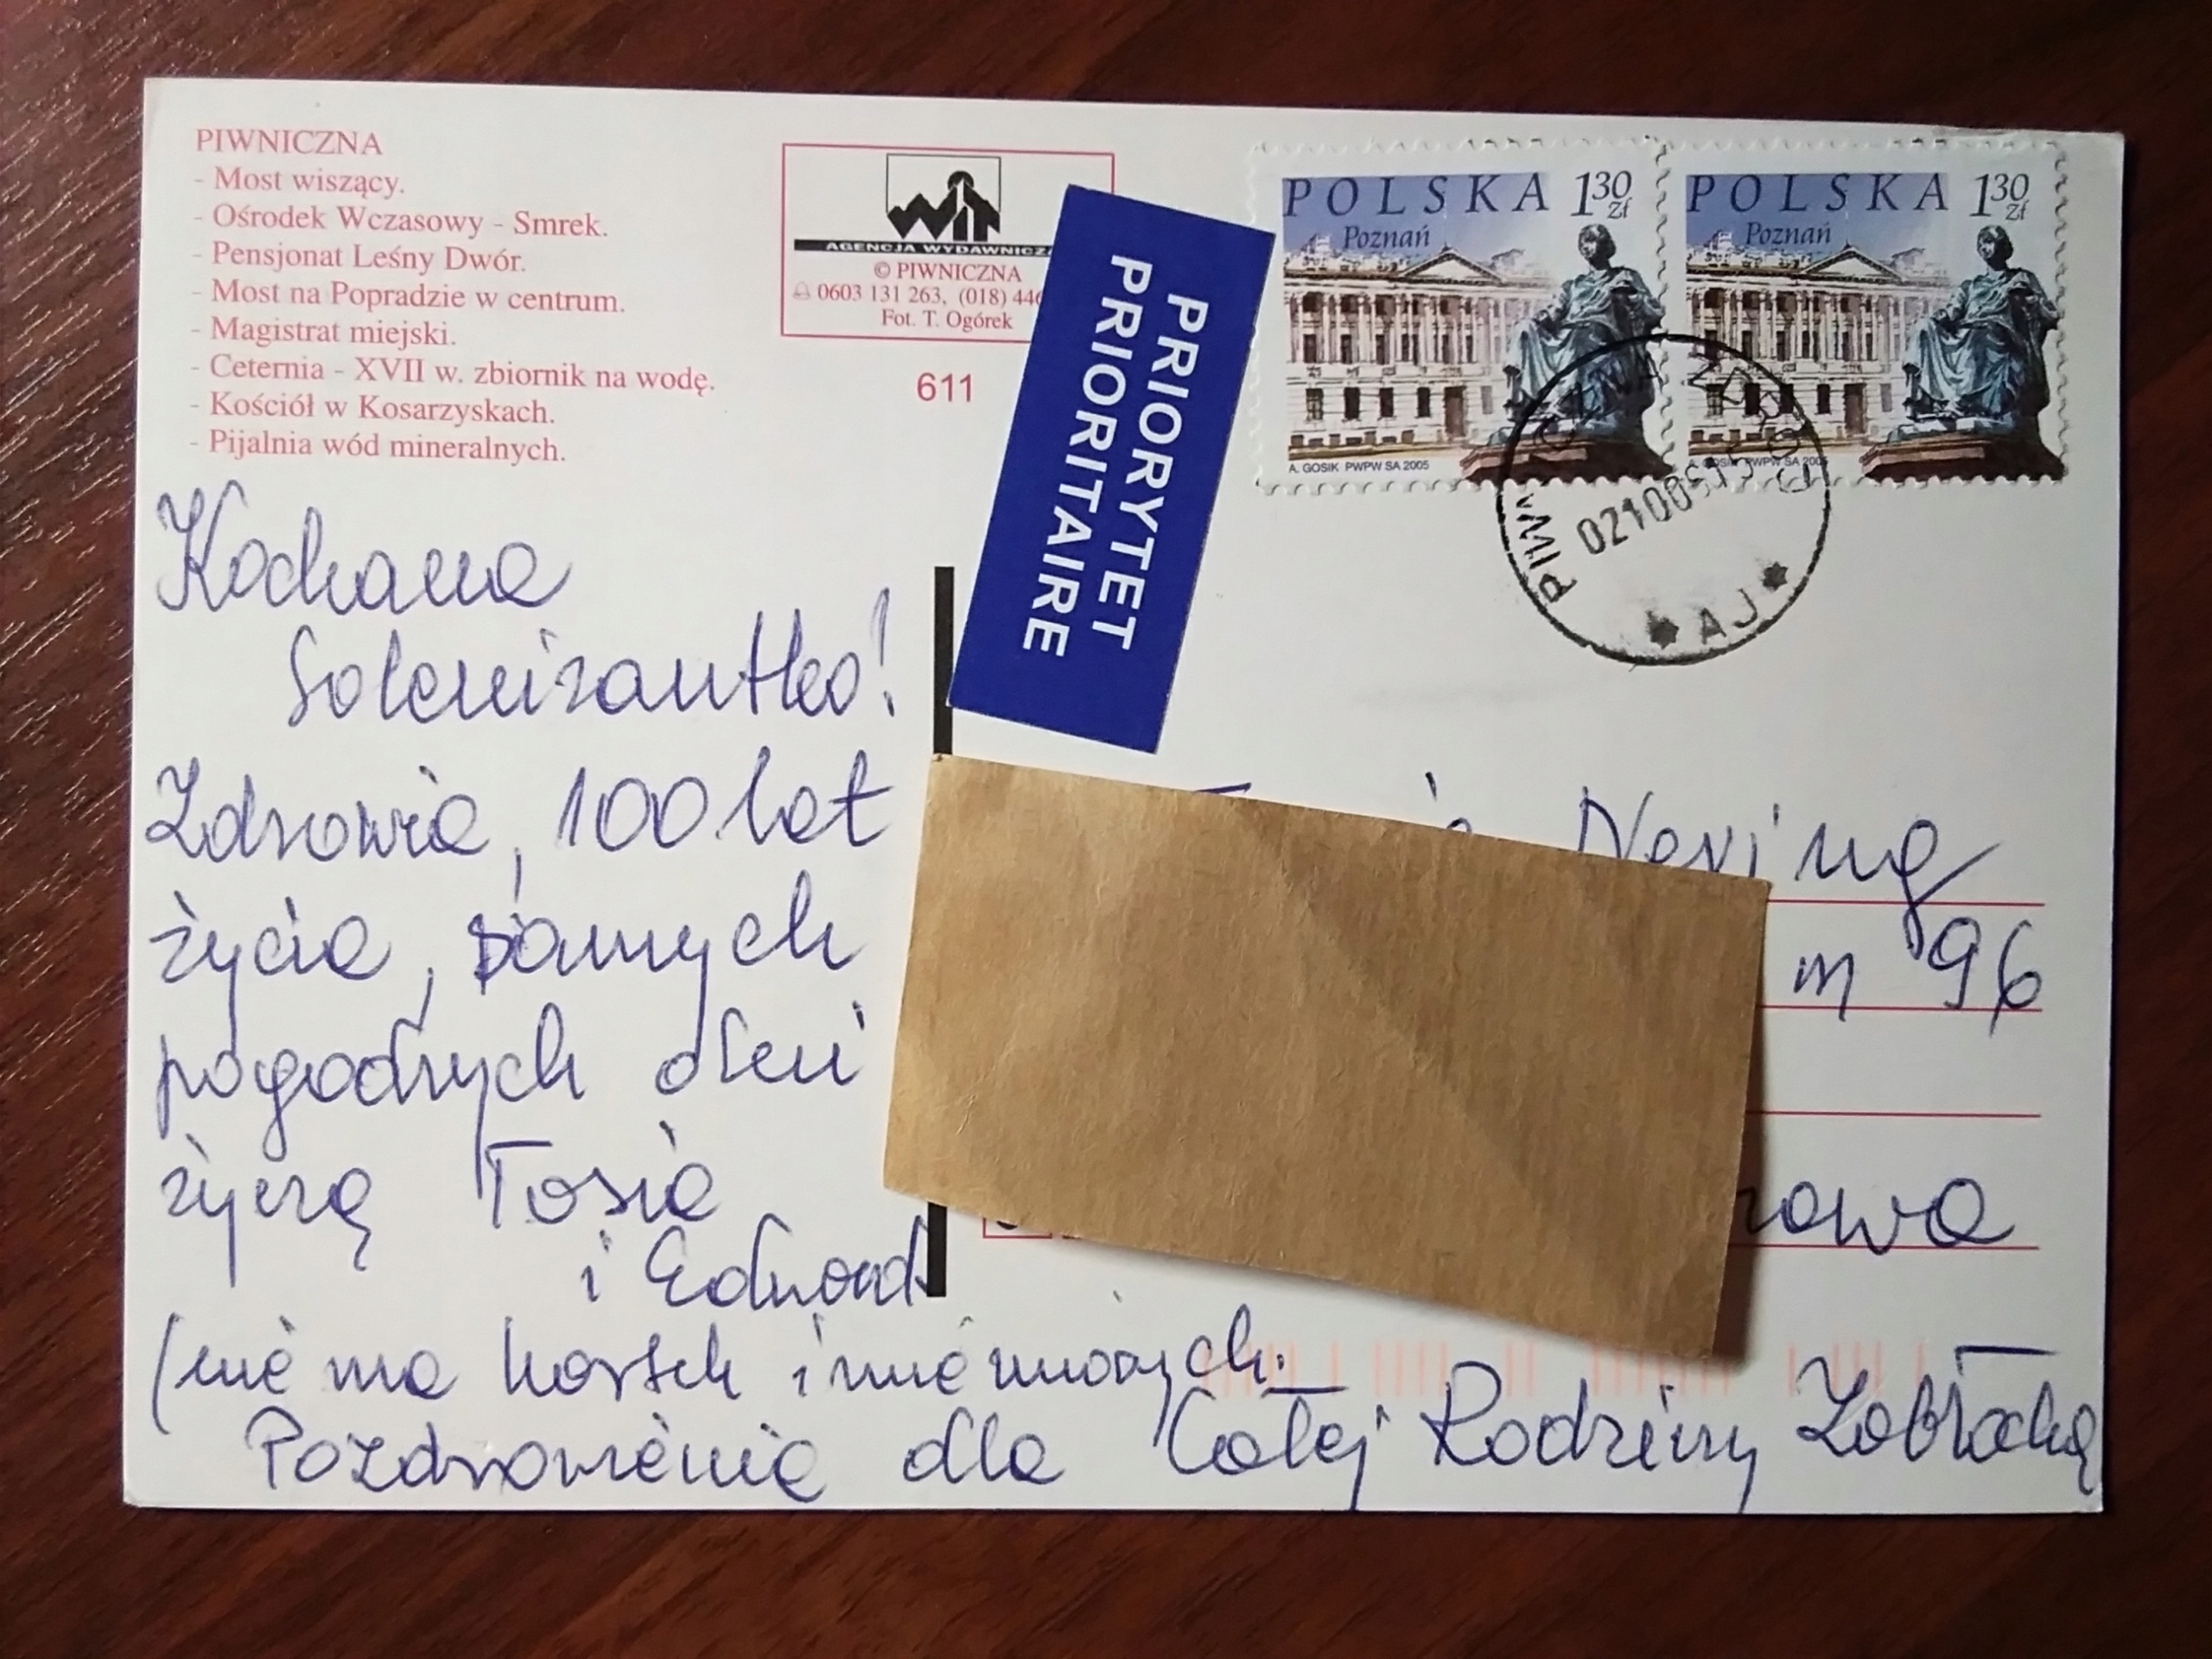 PIWNICZNA
- Most wiszący.
- Ośrodek Wczasowy - Smrek.
- Pensjonat Leśny Dwór.
- Most na Popradzie w centrum.
- Magistrat miejski.
- Ceternia - XVII w. zbiornik na wodę.
- Kościół w Kosarzyskach.
- Pijalnia wód mineralnych.
WiT
AGENCJA WYDAWNICZA
© PIWNICZNA
0603 131 263, (018) 446
Fot. T. Ogórek
611
PRIORYTET
PRIORITAIRE
POLSKA 130 zł
Poznań
A. GOSIK PWPW SA 2005
POLSKA 130 zł
Poznań
A. GOSIK PWPW SA 2005
AJ
Kochana
Solenizantko!
Zdrowia, 100 lat
życia, samych
pogodnych dni
życzą Tosia
i Edward
(nie ma kartek imieninowych.
Pozdrowienia dla Całej Rodziny
m 96